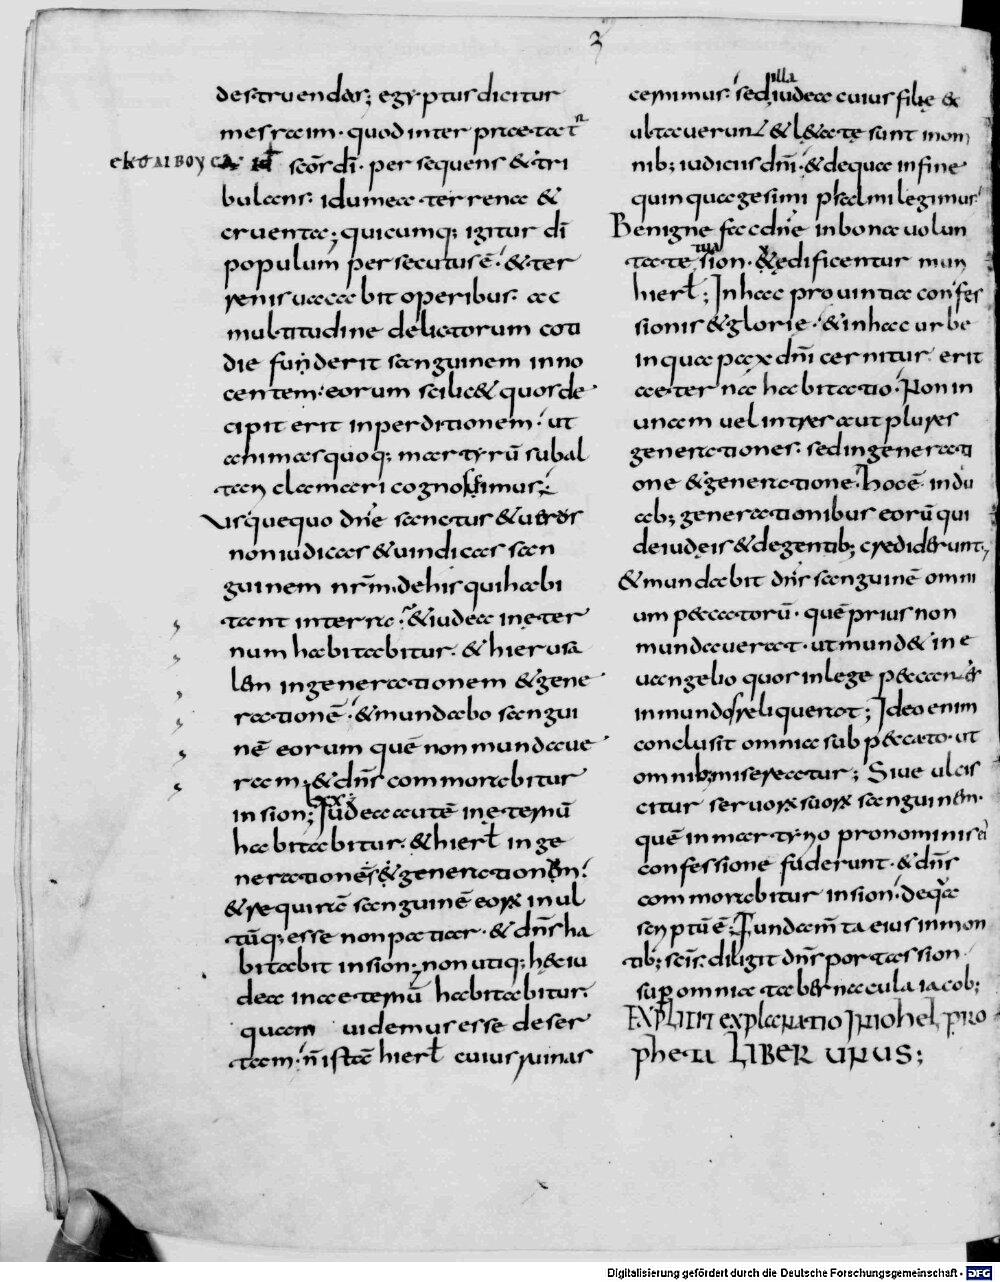 3
destruendas; egyptus dicitur
mesraim· quod inter praetatr̄
εκθλιβουσα· id scōs dī· persequens & tri
bulans· idumea terrena &
cruenta; quicumq; igitur dī
populum persecutus ē· & ter
renis uacabit operibus· ac
multitudine delictorum coti
die funderit sanguinem inno
centem· eorum scilic& quos de
cipit erit in perditionem· ut
animas quoq; martyrū sub al
tari clamari cognoscimus;
Usquequo dn̄e sanctus & uerus
non iudicas & uindicas san
guinem nr̄m· de his qui habi
tant in terra· & iudea in eter
num habitabitur· & hierusa
lem in generationem & gene
rationē· & mundabo sangui
nē eorum quē non mundaue
ram· & dn̄s commorabitur
lxx·
in sion; Iudea autē in eternū
habitabitur· & hierł in ge
nerationēs & generationem·
& requirā sanguinē eorꝝ inul
tūq; esse non patiar· & dn̄s ha
bitabit in sion· non utiq; haec iu
dea in aeternū habitabitur·
quam uidemus esse deser
tam· n̄ istā hierł cuius ruinas
cernimus· sed illa iudea cuius filię &
ultauerunt & l&atę sunt in om
nib; iudiciis dn̄i· & de qua in fine
quinquagesimi psalmi legimus·
Benigne fac dn̄e in bona uolun
tate tua sion· & edificentur muri
hierł; In hac prouintia confes
sionis & glorie· & in hac urbe
in qua pax dn̄i cernitur· erit
aeterna habitatio· Non in
unam uel in tres aut plures
generationes· sed in generati
one & generatione· Hoc ē in du
ab; generationibus eorū qui
de iudeis & de gentib; crediderunt,
& mundabit dn̄s sanguinē omni
um peccatorū· quē prius non
mundauerat· ut mund& in e
uangelio quos in lege peccantes
inmundos reliquerat; Ideo enim
conclusit omnia sub peccato· ut
omnib; misereatur; Siue ulcis
citur seruorꝝ suorꝝ sanguinem·
quē in martyrio pro nominis ei
confessione fuderunt· & dn̄s
commorabitur in sion· de qua
scriptū ē; Fundam̄ta eius in mon
tib; scīs· diligit dn̄s portas sion
sup omnia tabernacula iacob;
EXPLICIT explanatio IN iohel pro
pheta LIBER UNUS;
Digitalisierung gefördert durch die Deutsche Forschungsgemeinschaft - DFG